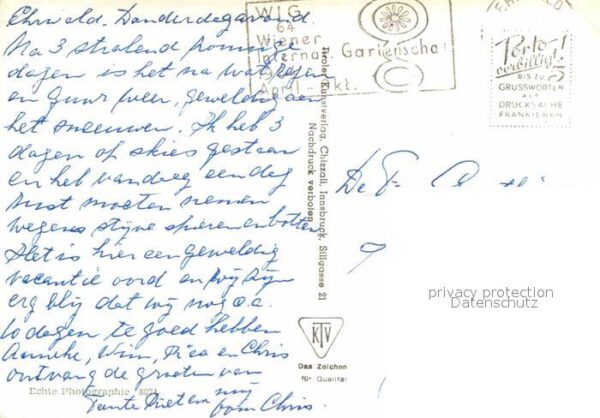 Ehrwald. Donderdagavond.
Na 3 stralend zonnige
dagen is het na wat regen
en guur weer, geweldig aan
het sneeuwen. Ik heb 3
dagen op skies gestaan
en heb vandaag een dag
rust moeten nemen
wegens stijve spieren en botten
Het is hier een geweldig
vacantie oord en wij zijn
erg blij dat wij nog o.a.
10 dagen te goed hebben
Anneke, Wim, Rica en Chris
ontvang de groeten van
Tante Riet en mij
oom Chris.
Echte Photographie 8074
WIG
64
Wiener
Internat
Gartenschau
April - Okt.
Porto
verbilligt!
BIS ZU 5
GRUSSWORTEN
ALS
DRUCKSACHE
FRANKIEREN
Tiroler Kunstverlag, Chizzali, Innsbruck, Sillgasse 21
Nachdruck verboten
De
KTV
Das Zeichen
für Qualität
privacy protection
Datenschutz